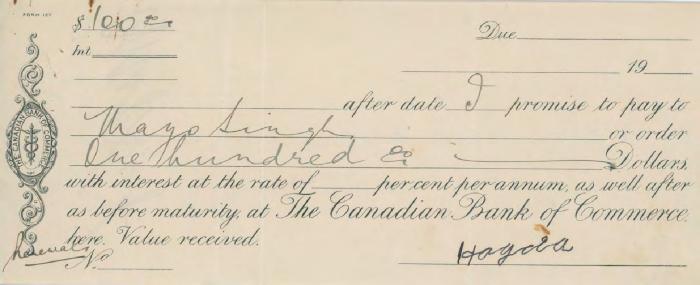 FORM 127
$ 100 00
Due
Int
19
after date I promise to pay to
Mayo Singh
or order
One Hundred 00 Dollars
with interest at the rate of per cent per annum, as well after
as before maturity, at The Canadian Bank of Commerce
here. Value received.
THE CANADIAN BANK OF COMMERCE
Renewal
No.